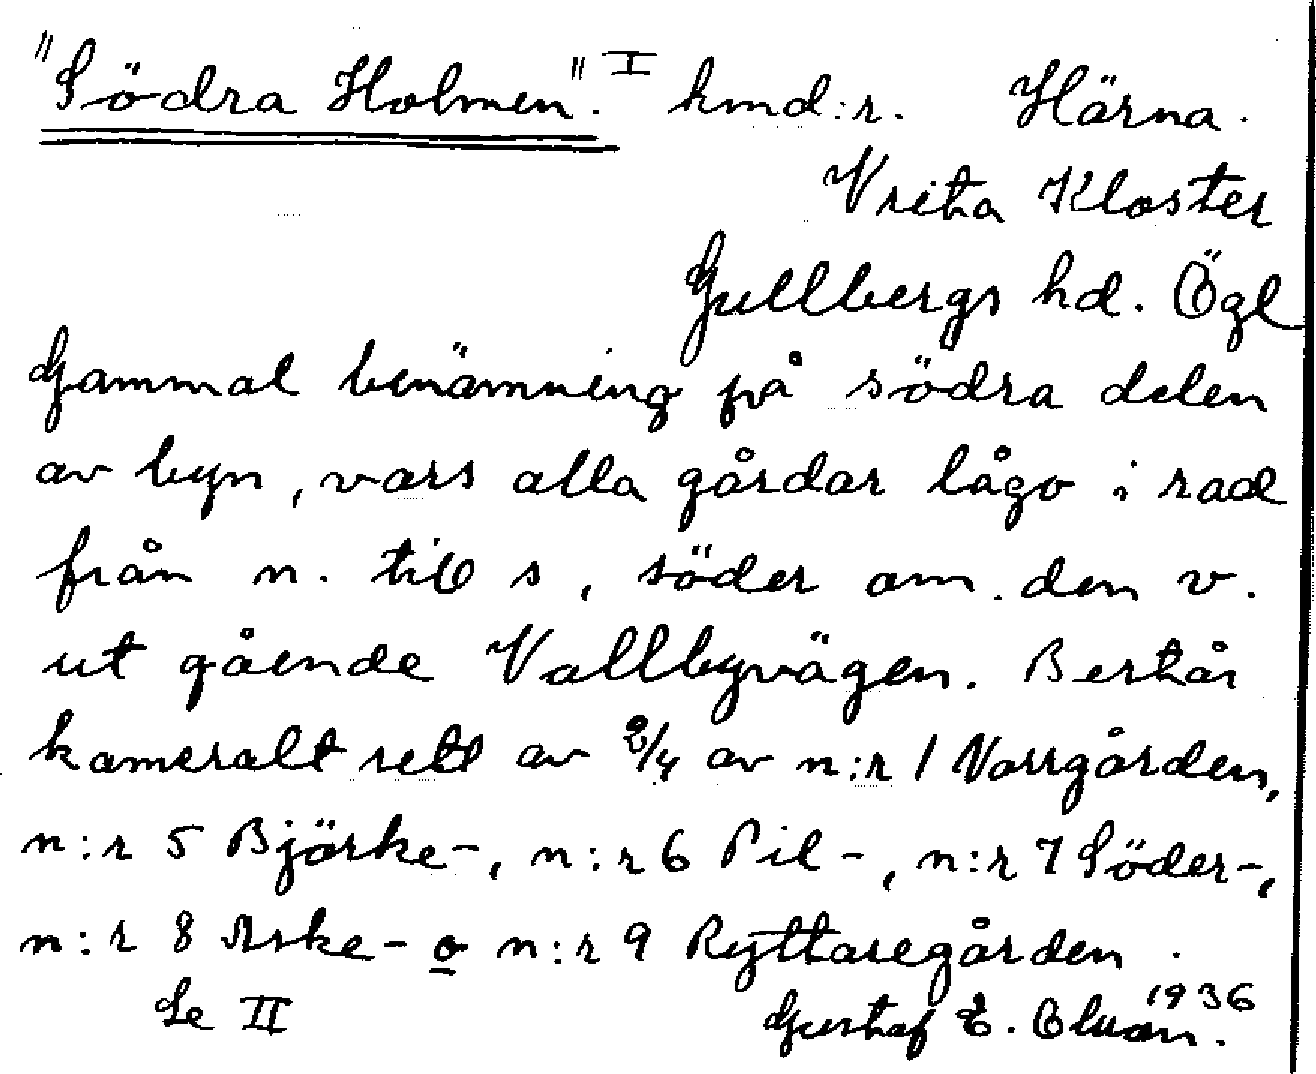 "Södra Holmen". I hmd:r. Härna.
Vreta Kloster
Gullbergs hd. Ögl
Gammal benämning på södra delen
av byn, vars alla gårdar lågo i rad
från n. till s, söder om den v.
ut gående Vallbyvägen. Består
kameralt sett av 2/4 av n:r 1 Norrgården,
n:r 5 Björke-, n:r 6 Pil-, n:r 7 Söder-,
n:r 8 Aske- o n:r 9 Ryttaregården.
Se II Gustaf E. 1936